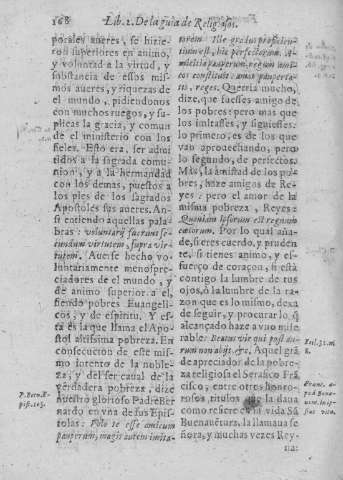 168 Lib. 2. De la guia de Religiosos.
porales aueres, se hizie-
ron superiores en animo,
y voluntad a la virtud, y
substancia de essos mis-
mos aueres, y riquezas de
el mundo, pidiendonos
con muchos ruegos, y su-
plicas la gracia, y comun
de el ministerio con los
fieles. Esto era, ser admi-
tidos a la sagrada comu-
nion, y a la hermandad
con los demas, puestos a
los pies de los sagrados
Apostoles sus aueres. An-
si entiendo aquellas pala-
bras: voluntarij fuerunt se-
cundum virtutem, supra vir-
tutem. Auerse hecho vo-
luntariamente menospre-
ciadores de el mundo, y
de animo superior a el,
siendo pobres Euangeli-
cos, y de espiritu. Y es-
ta es la que llama el Apos-
tol altissima pobreza. En
consecucion de este mis-
mo intento de la noble-
za, y del ser caual de la
verdadera pobreza, dize
nuestro glorioso Padre Ber
nardo en vna de sus Epis-
tolas: Volo te esse amicum
pauperum, magis autem imita-
P. Bern. E-
pist. 103.
torem. Ille gradus proficien-
tium est, hic perfectorum. A-
micitia pauperum, regum ami-
cos constituit: amor pauperta-
tis, reges. Queria mucho,
dize, que fuesses amigo de
los pobres: pero mas que
los imitasses, y siguiesses:
lo primero, es de los que
van aprouechando, pero
lo segundo, de perfectos.
Mas, la amistad de los po-
bres, haze amigos de Re-
yes: pero el amor de la
misma pobreza, Reyes:
Quoniam ipsorum est regnum
cælorum. Por lo qual aña-
de, si eres cuerdo, y pruden
te, si tienes animo, y es-
fuerço de coraçon, si està
contigo la lumbre de tus
ojos, ò la lumbre de la ra-
zon que es lo mismo, dexa
de seguir, y procurar lo, q̃
alcançado haze a vno mise
rable: Beatus vir qui post au-
rum non abijt, &c. Aquel grã
de apreciador de la pobre-
za religiosa el Serafico Frã
cisco, entre otros honro-
rosos, titulos que la daua
como refiere en su vida Sã
Buenauẽtura, la llamaua se
ñora, y muchas vezes Rey-
na:
Eccl. 31. nu.
8.